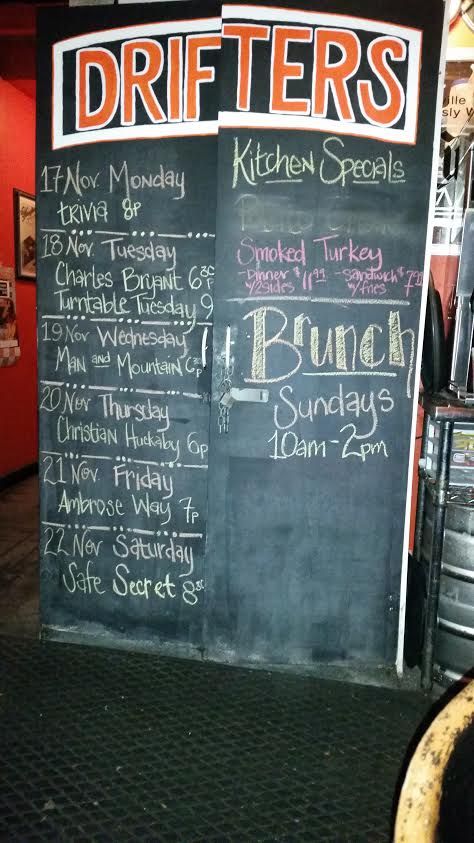 DRIFTERS
17 Nov. Monday
trivia 8p
18 Nov. Tuesday
Charles Bryant 6:30
Turntable Tuesday 9
19 Nov Wednesday
Man and Mountain 6:30p
20 Nov Thursday
Christian Huckaby 6p
21 Nov. Friday
Ambrose Way 7p
22 Nov Saturday
Safe Secret 8:30
Kitchen Specials
Smoked Turkey
-Dinner $11.99 -Sandwich $7.99
w/2sides w/fries
Brunch
Sundays
10am-2pm
ville
sly W